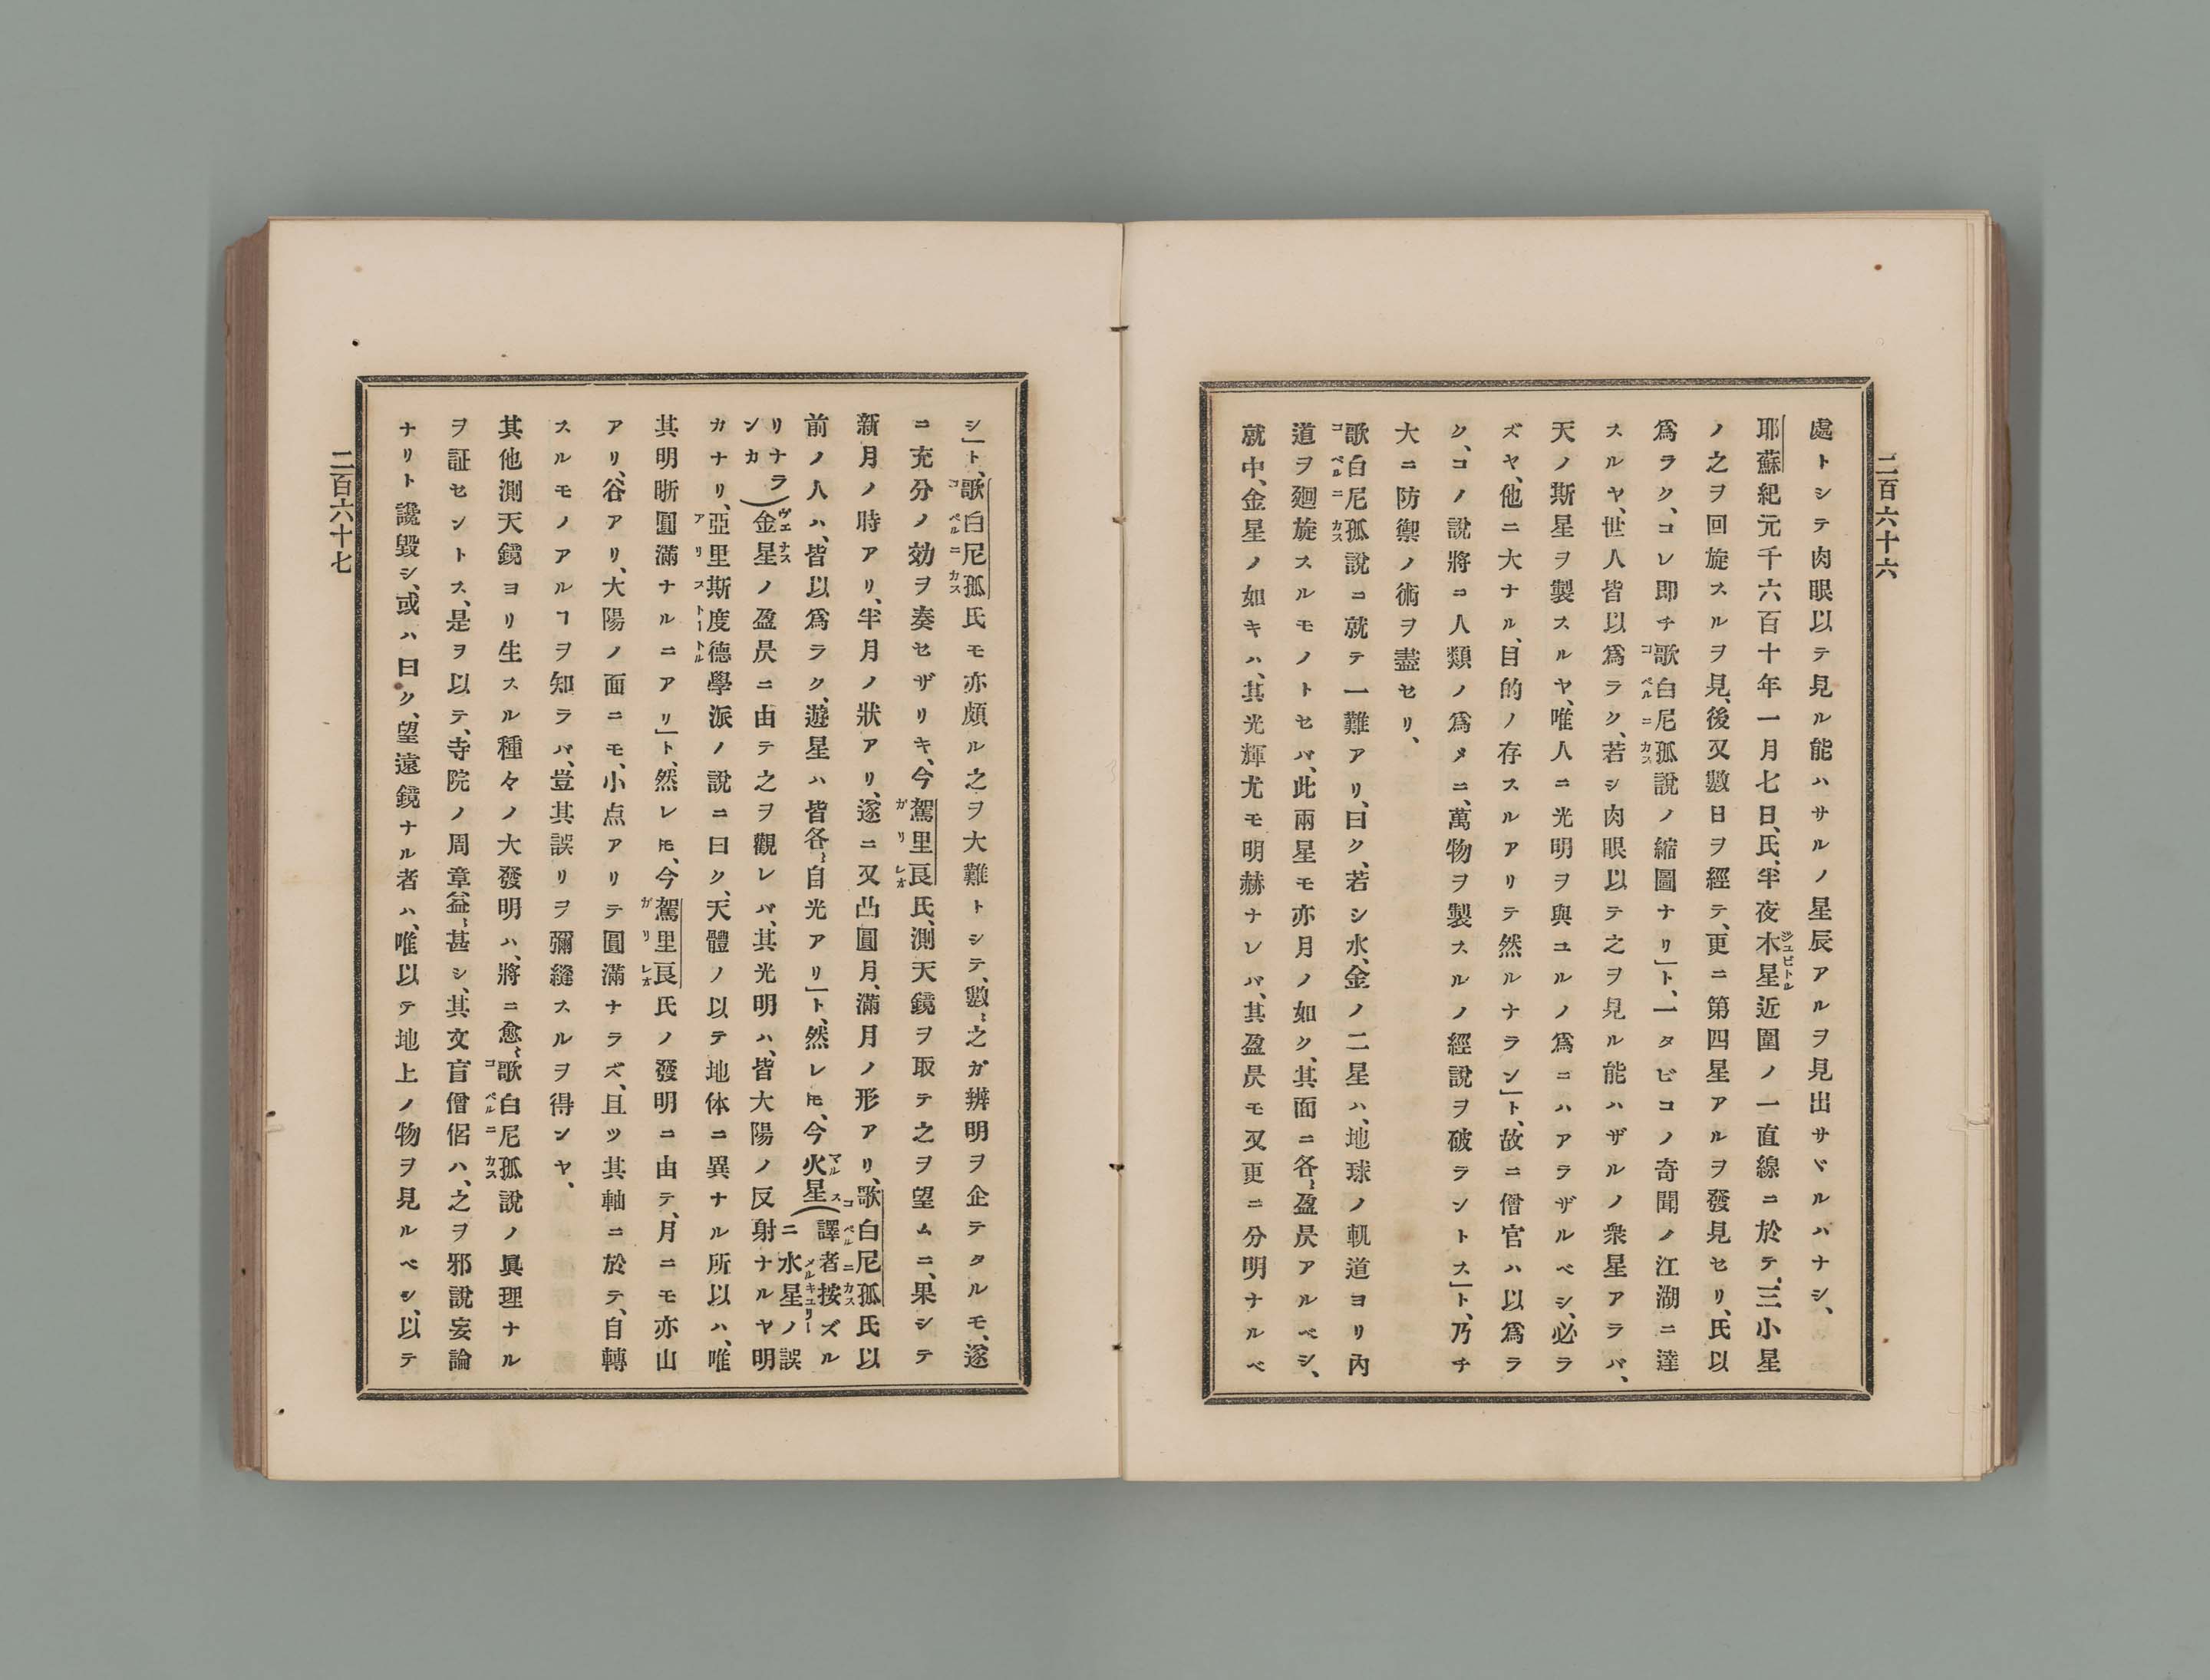 二百六十六
處トシテ肉眼以テ見ル能ハサルノ星辰アルヲ見出サヾルハナシ、
耶蘇紀元千六百十年一月七日、氏、半夜木星近圍ノ一直線ニ於テ、三小星
ノ之ヲ回旋スルヲ見、後又數日ヲ經テ、更ニ第四星アルヲ發見セリ、氏以
爲ラク、コレ即チ歌白尼孤說ノ縮圖ナリ」ト、一タビコノ奇聞ノ江湖ニ達
スルヤ、世人皆以爲ラク、若シ肉眼以テ之ヲ見ル能ハザルノ衆星アラバ、
天ノ斯星ヲ製スルヤ、唯人ニ光明ヲ與ユルノ爲ニハアラザルベシ、必ラ
ズヤ、他ニ大ナル、目的ノ存スルアリテ然ルナラン」ト、故ニ僧官ハ以爲ラ
ク、コノ說將ニ人類ノ爲メニ、萬物ヲ製スルノ經說ヲ破ラントス」ト、乃チ
大ニ防禦ノ術ヲ盡セリ、
歌白尼孤說ニ就テ一難アリ、曰ク、若シ水、金ノ二星ハ、地球ノ軌道ヨリ內
道ヲ廻旋スルモノトセバ、此兩星モ亦月ノ如ク、其面ニ各〻盈昃アルベシ、
就中、金星ノ如キハ、其光輝尤モ明赫ナレバ、其盈昃モ又更ニ分明ナルベ
シ」ト、歌白尼孤氏モ亦頗ル之ヲ大難トシテ、數〻之ガ辨明ヲ企テタルモ、遂
ニ充分ノ効ヲ奏セザリキ、今駕里良氏、測天鏡ヲ取テ之ヲ望ムニ、果シテ
新月ノ時アリ、半月ノ狀アリ、遂ニ又凸圓月、滿月ノ形アリ、歌白尼孤氏以
前ノ人ハ、皆以爲ラク、遊星ハ皆各〻自光アリ」ト、然レ𪜈、今火星（譯者按ズルニ水星ノ誤
リナランカ）金星ノ盈昃ニ由テ之ヲ觀レバ、其光明ハ、皆大陽ノ反射ナルヤ明
カナリ、亞里斯度德學派ノ說ニ曰ク、天體ノ以テ地体ニ異ナル所以ハ、唯
其明晣圓滿ナルニアリ」ト、然レ𪜈、今駕里良氏ノ發明ニ由テ、月ニモ亦山
アリ、谷アリ、大陽ノ面ニモ、小点アリテ圓滿ナラズ、且ツ其軸ニ於テ、自轉
スルモノアルヿヲ知ラバ、豈其誤リヲ彌縫スルヲ得ンヤ、
其他測天鏡ヨリ生スル種々ノ大發明ハ、將ニ愈〻歌白尼孤說ノ眞理ナル
ヲ証セントス、是ヲ以テ、寺院ノ周章益〻甚シ、其文盲僧侶ハ、之ヲ邪說妄論
ナリト讒毀シ、或ハ曰ク、望遠鏡ナル者ハ、唯以テ地上ノ物ヲ見ルベシ、以テ
二百六十七